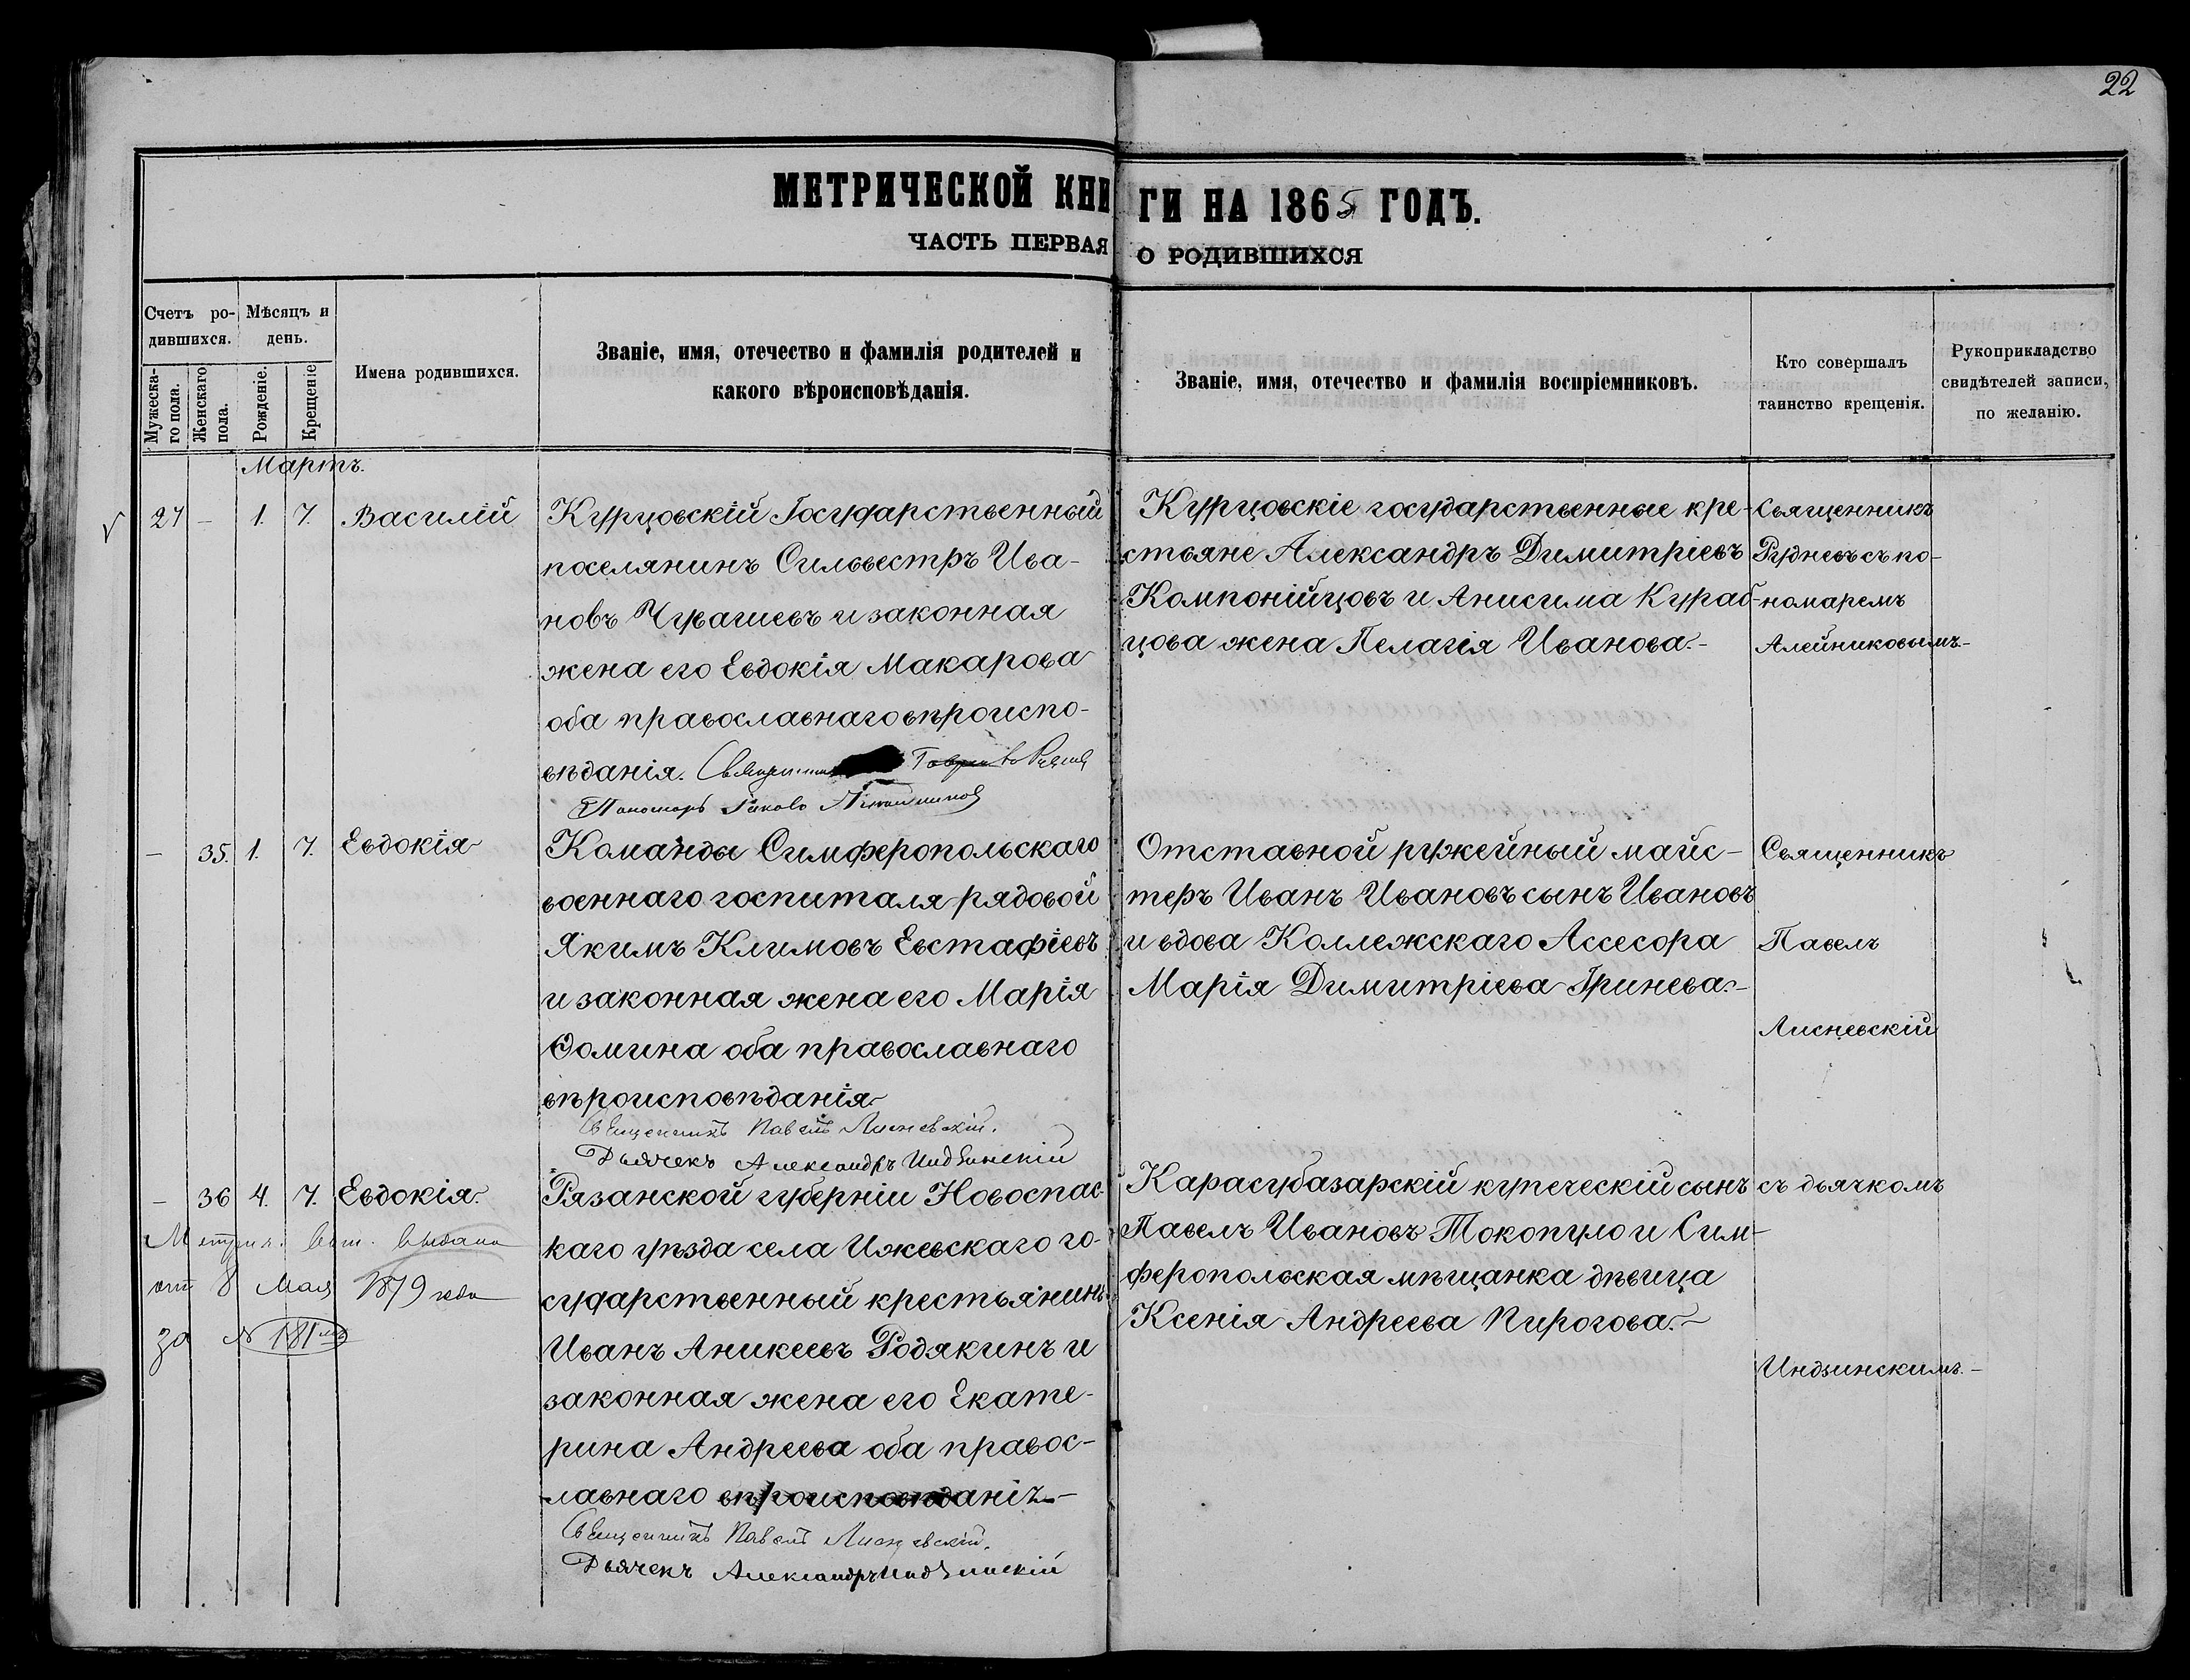 22
МЕТРИЧЕСКОЙ КНИГИ НА 1865 ГОДЪ.
ЧАСТЬ ПЕРВАЯ О РОДИВШИХСЯ
Счетъ ро-
дившихся.
Мужеска-
го пола.
Женскаго
пола.
Мѣсяцъ и
день.
Рожденіе.
Крещеніе
Имена родившихся.
Званіе, имя, отечество и фамилія родителей и
какого вѣроисповѣданія.
Званіе, имя, отечество и фамилія воспріемниковъ.
Кто совершалъ
таинство крещенія.
Рукоприкладство
свидѣтелей записи,
по желанію.
Мартъ.
27 - 1. 7. Василій
Курцовскій Государственный
поселянинъ Сильвестръ Ива-
новъ и законная
жена его Евдокія Макарова
оба православнаго вѣроиспо-
вѣданія.
Пономарь Яковъ
Курцовскіе государственные кре-
стьяне Александръ Димитріевъ
Компонійцовъ и Анисима Кураб-
цова жена Пелагія Иванова.-
Священникъ
Рудневъ съ по-
номаремъ
Алейниковымъ.-
- 35. 1. 7. Евдокія
Команды Симферопольскаго
военнаго госпиталя рядовой
Якимъ Климовъ Евстафіевъ
и законная жена его Марія
Ѳомина оба православнаго
вѣроисповѣданія
Священникъ Павелъ Лисневскій.
Дьячекъ Александръ Индзинскій
Отставной ружейный майс-
теръ Иванъ Ивановъ сынъ Ивановъ
и вдова Коллежскаго Ассесора
Марія Димитріева Гринева.-
Священникъ
Павелъ
Лисневскій
- 36 4. 7. Евдокія.
Метрич. выдано
отъ 8 Мая 1879 года
за № 181
Рязанской губерніи Новоспас-
каго уѣзда села Ижевскаго го-
сударственный крестьянинъ
Иванъ Аникеевъ Родякинъ и
законная жена его Екате-
рина Андреева оба правос-
лавнаго вѣроисповѣданія.-
Священникъ Павелъ Лисневскій.
Дьячекъ Александръ Индзинскій
Карасубазарскій купеческій сынъ
Павелъ Ивановъ Токопуло и Сим-
феропольская мѣщанка дѣвица
Ксенія Андреева Пирогова.-
съ дьячкомъ
Индзинскимъ.-